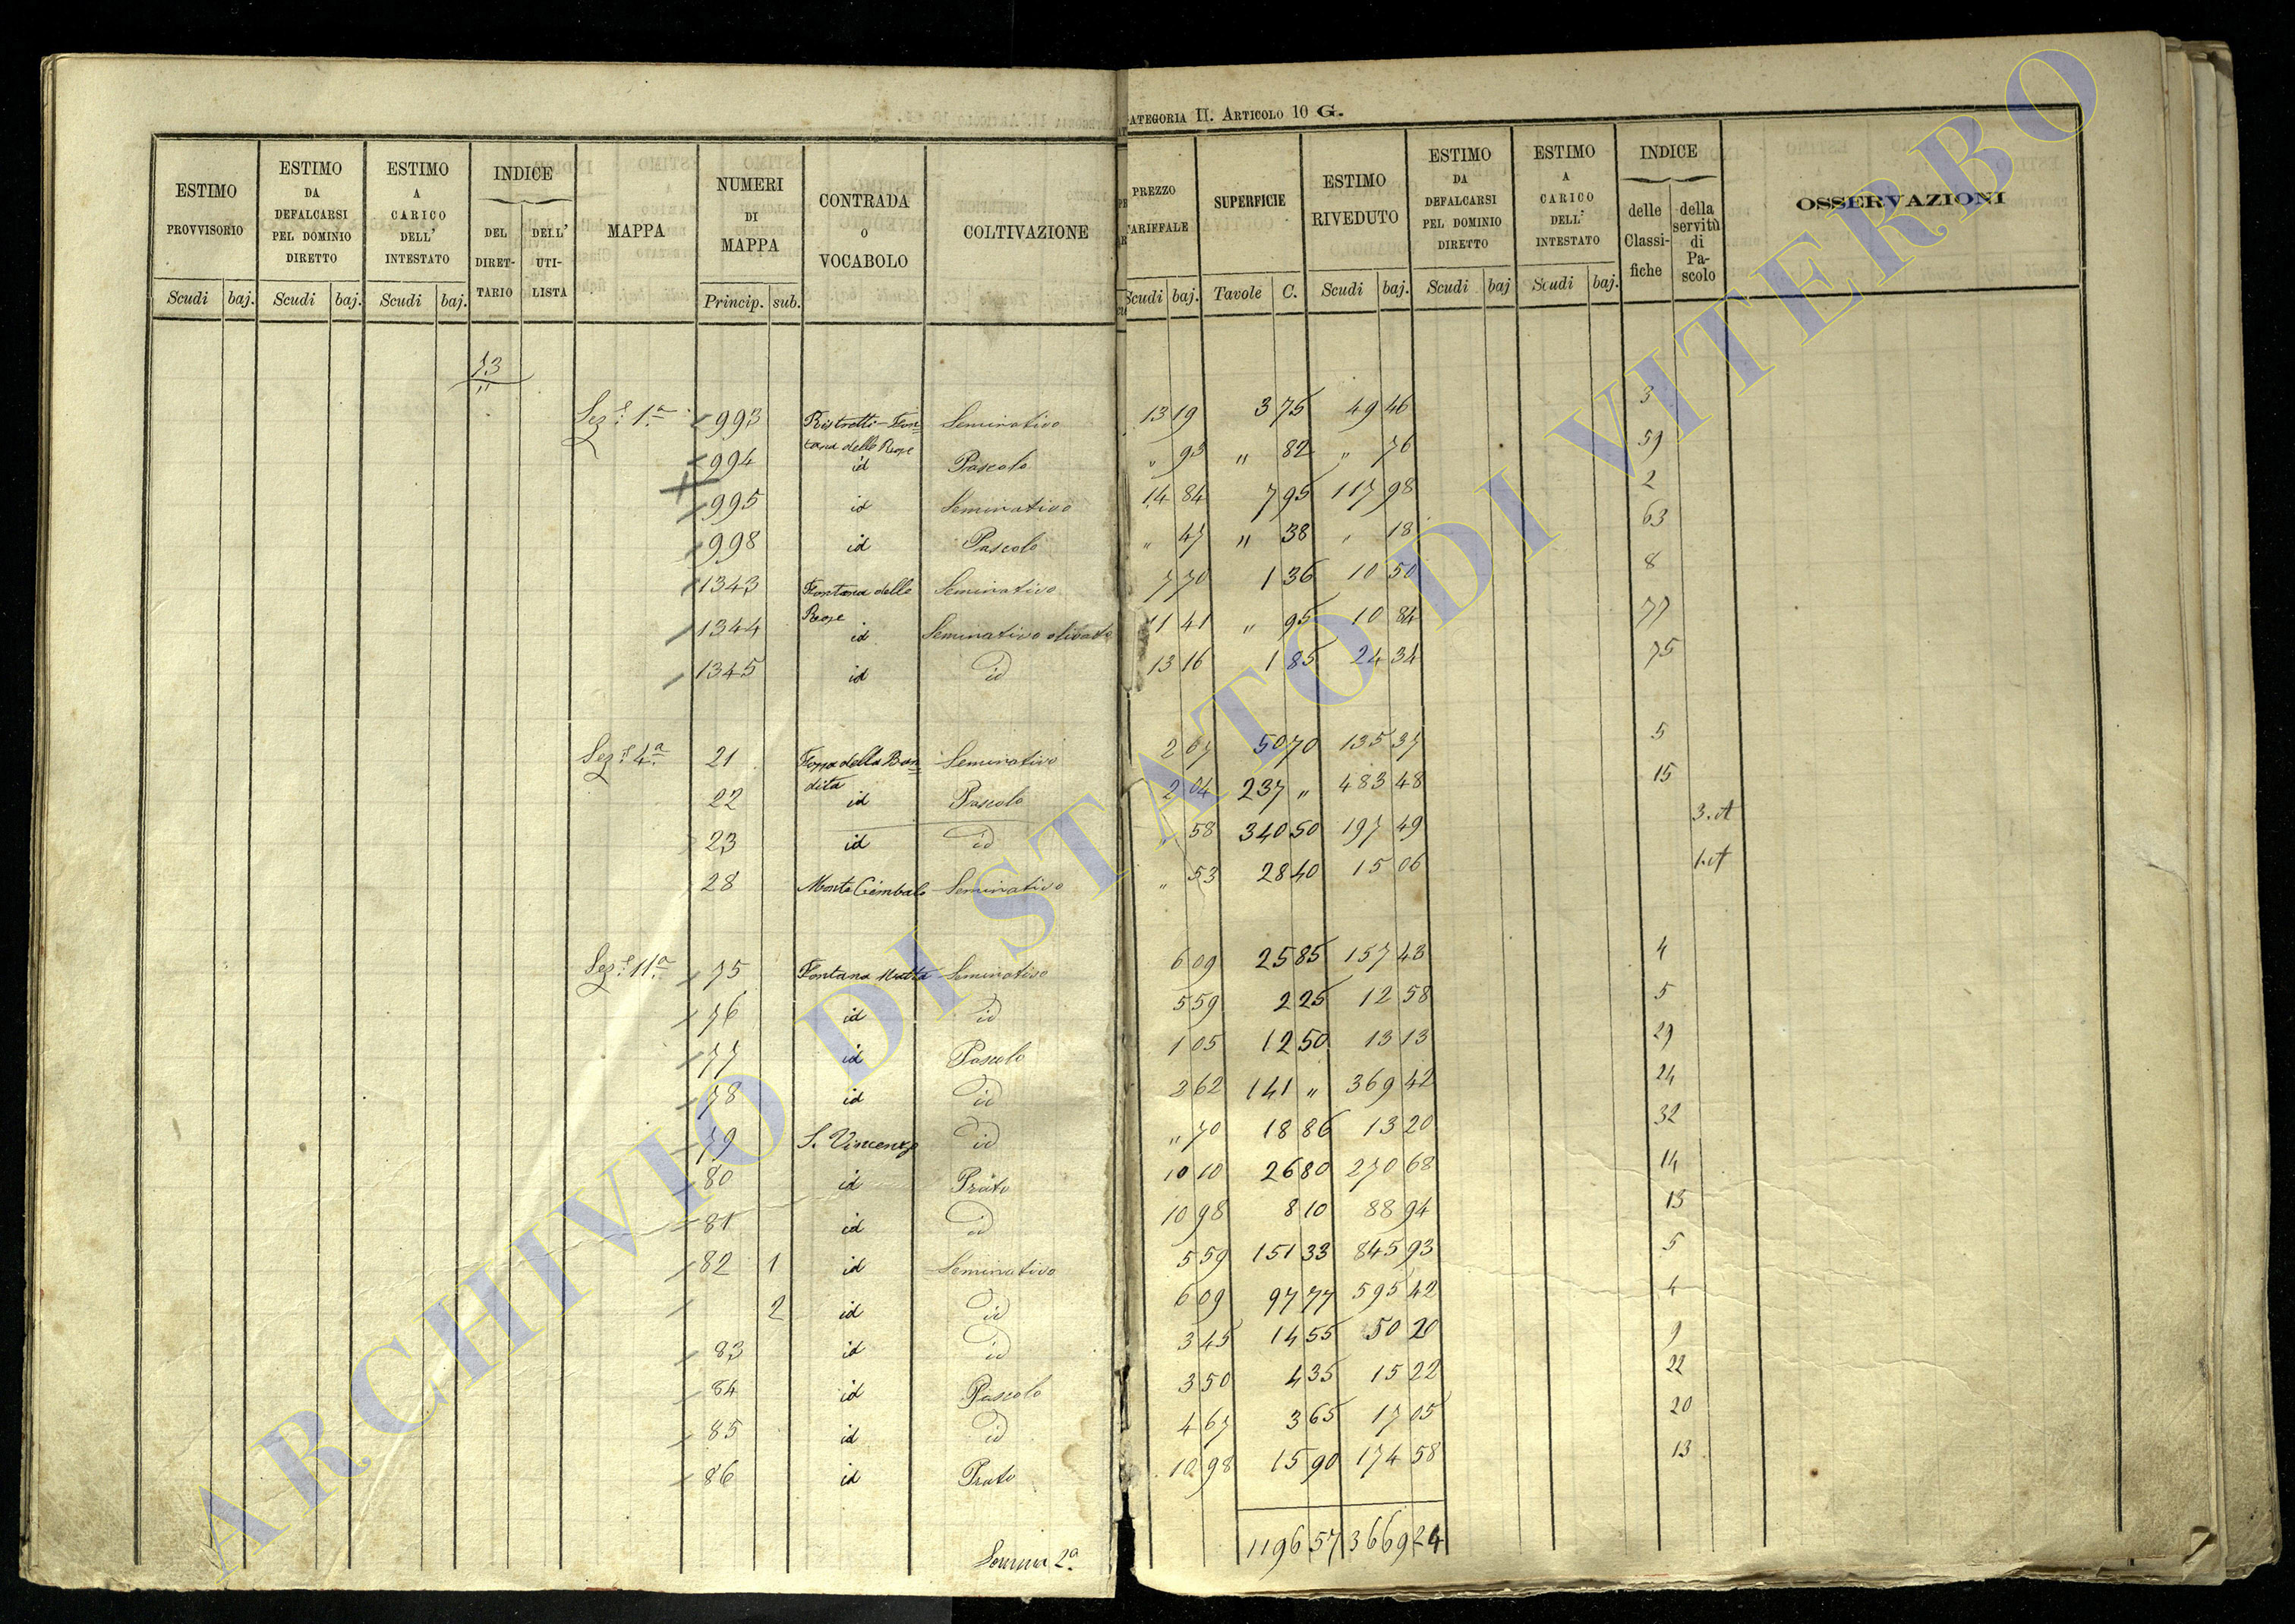 CATEGORIA II. ARTICOLO 10 G.
ESTIMO PROVVISORIO Scudi baj.
ESTIMO DA DEFALCARSI PEL DOMINIO DIRETTO Scudi baj.
ESTIMO A CARICO DELL' INTESTATO Scudi baj.
INDICE DEL DIRETTARIO DELL' UTILISTA
MAPPA
NUMERI DI MAPPA Princip. sub.
CONTRADA O VOCABOLO
COLTIVAZIONE
PREZZO TARIFFALE Scudi baj.
SUPERFICIE Tavole C.
ESTIMO RIVEDUTO Scudi baj.
ESTIMO DA DEFALCARSI PEL DOMINIO DIRETTO Scudi baj
ESTIMO A CARICO DELL' INTESTATO Scudi baj.
INDICE delle Classifiche della servitù di Pascolo
OSSERVAZIONI
73
Sez.e 1a 993 Ristretti-Fontana delle Rose Seminativo 13 19 3 75 49 46 3
994 id Pascolo " 93 " 82 " 76 59
995 id Seminativo 14 84 7 95 117 98 2
998 id Pascolo " 47 " 38 " 18 63
1343 Fontana delle Rose Seminativo 7 70 1 36 10 50 8
1344 id Seminativo olivato 11 41 " 95 10 84 77
1345 id id 13 16 1 85 24 34 75
Sez.e 4a 21 Fossa della Bandita Seminativo 2 67 50 70 135 37 5
22 id Pascolo 2 04 237 " 483 48 15
23 id id " 58 340 50 197 49 3.A
28 Monte Cimbalo Seminativo " 53 28 40 15 06 1.A
Sez.e 11a 75 Fontana Matta Seminativo 6 09 25 85 157 43 4
76 id id 5 59 2 25 12 58 5
77 id Pascolo 1 05 12 50 13 13 29
78 id id 2 62 141 " 369 42 24
79 S. Vincenzo id " 70 18 86 13 20 32
80 id Prato 10 10 26 80 270 68 14
81 id id 10 98 8 10 88 94 13
82 1 id Seminativo 5 59 151 33 845 93 5
2 id id 6 09 97 77 595 42 4
83 id id 3 45 14 55 50 20 9
84 id Pascolo 3 50 4 35 15 22 22
85 id id 4 67 3 65 17 05 20
86 id Prato 10 98 15 90 174 58 13
Somma 2a 1196 57 3669 24
ARCHIVIO DI STATO DI VITERBO